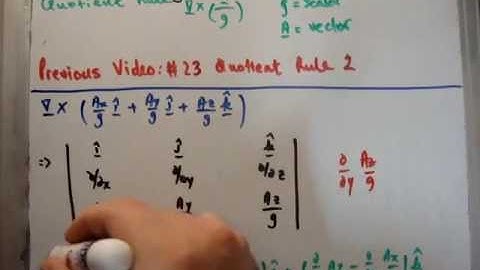 Quotient Rule ∇ × (A/g)
g = scalar
A = vector
Previous Video: #23 Quotient Rule 2
∇ × (Ax/g î + Ay/g ĵ + Az/g k̂)
=> | î ĵ k̂ |
∂/∂x ∂/∂y ∂/∂z
Ay Az/g
∂/∂y Az/g